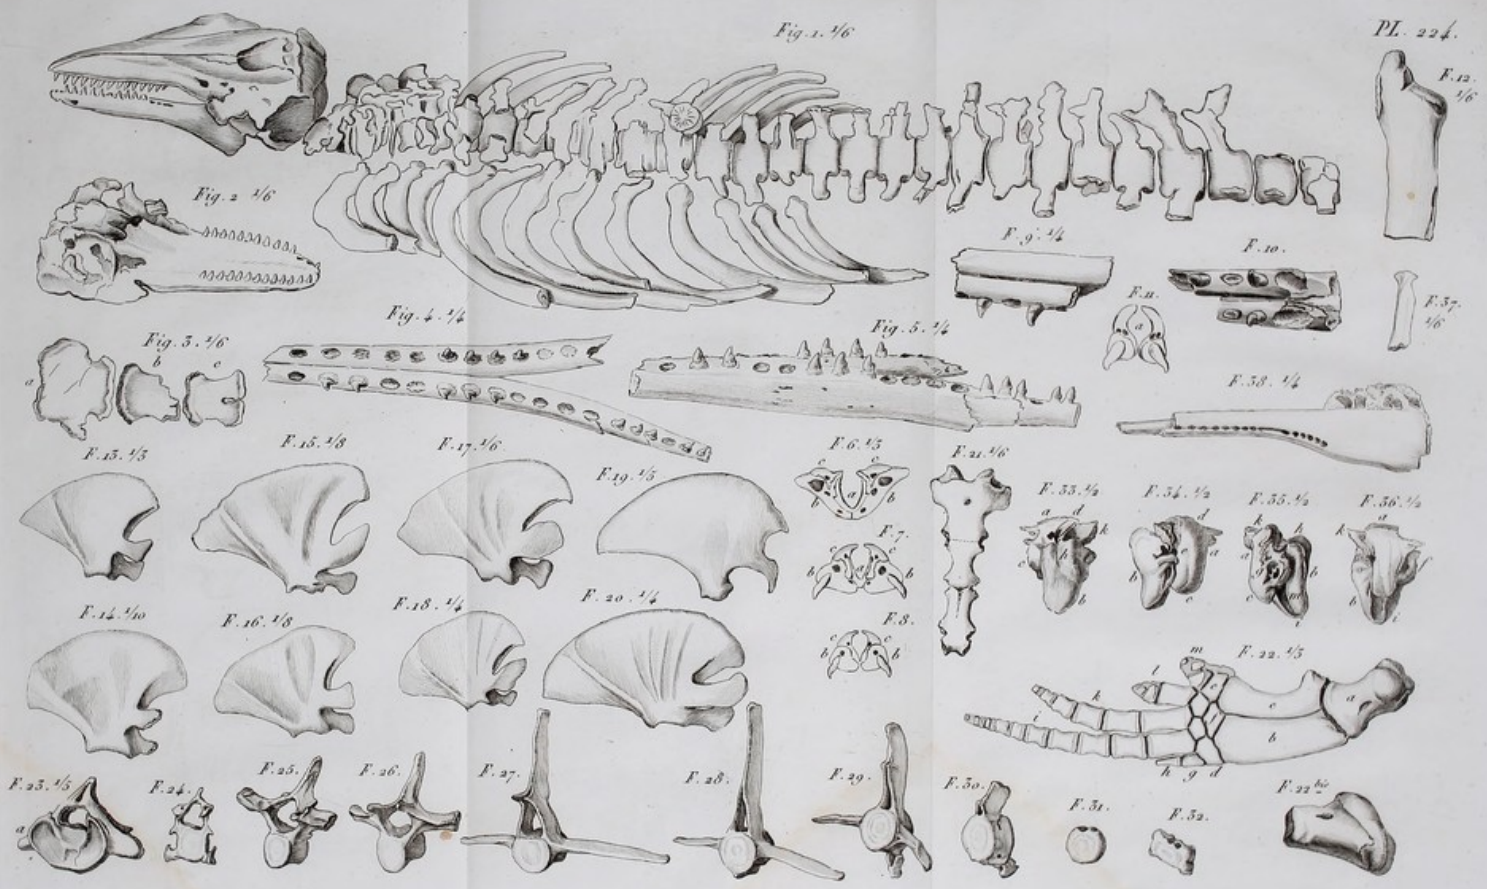 PL. 224.
Fig. 1. 1/6
F. 12.
1/6
Fig. 2 1/6
F. 9. 1/4
F. 10.
F. 11.
a
F. 37.
1/6
Fig. 3. 1/6
a b c
Fig. 4. 1/4
Fig. 5. 1/4
F. 38. 1/4
F. 13. 1/3
F. 15. 1/8
F. 17. 1/6
F. 19. 1/3
F. 6. 1/3
c c
b a b
F. 7.
c c
b a b
F. 8.
c c
b b
F. 21. 1/6
F. 33. 1/2
a d k
c h
b
F. 34. 1/2
d
a
b
c
F. 35. 1/2
k h
a
g b
c m
i
F. 36. 1/2
a
k
f
b i
F. 14. 1/10
F. 16. 1/8
F. 18. 1/4
F. 20. 1/4
F. 22. 1/3
m
l
k
i
c a
b
h g d
F. 23. 1/5
a
F. 24.
F. 25.
F. 26.
F. 27.
F. 28.
F. 29.
F. 30.
F. 31.
F. 32.
F. 22 bis